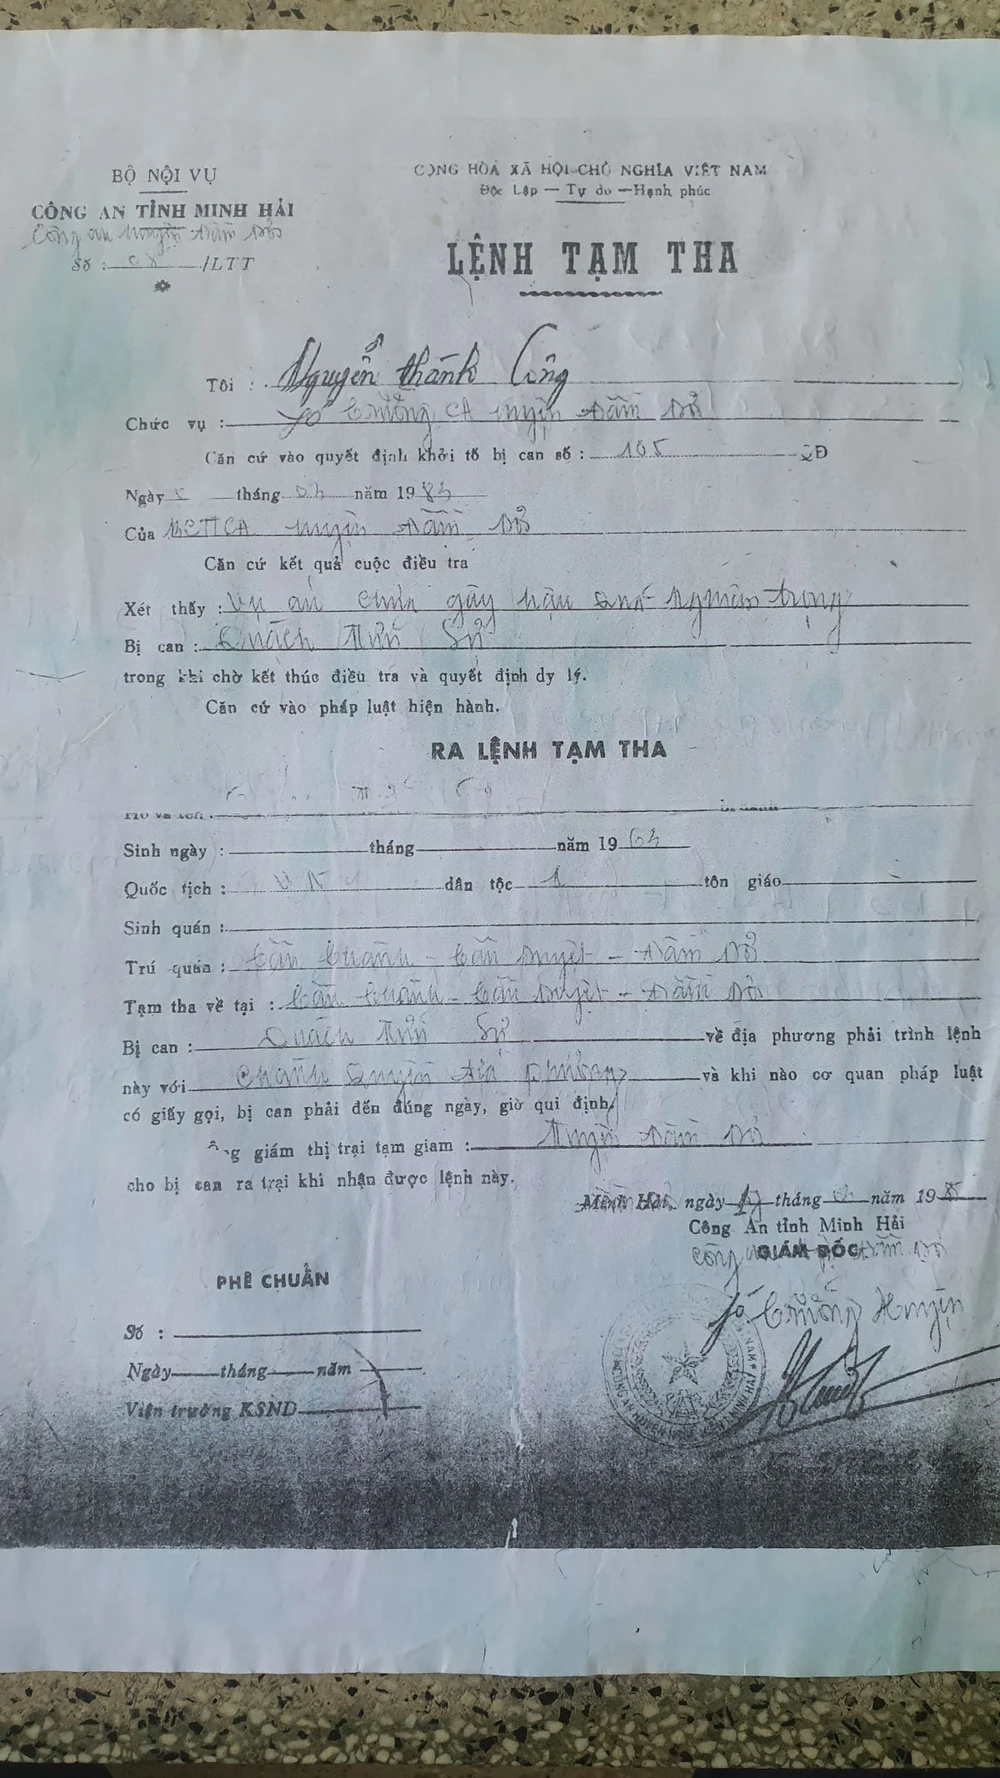 BỘ NỘI VỤ
CÔNG AN TỈNH MINH HẢI
Công an Huyện Đầm Dơi
Số : 08 /LTT
CỘNG HÒA XÃ HỘI CHỦ NGHĨA VIỆT NAM
Độc Lập — Tự do — Hạnh phúc
LỆNH TẠM THA
Tôi : Nguyễn thành Công
Chức vụ : trưởng CA huyện Đầm Dơi
Căn cứ vào quyết định khởi tố bị can số : 105 QĐ
Ngày tháng năm 19
Của huyện Đầm Dơi
Căn cứ kết quả cuộc điều tra
Xét thấy : Vụ án chưa gây hậu quả nghiêm trọng
Bị can : Quách
trong khi chờ kết thúc điều tra và quyết định dy lý.
Căn cứ vào pháp luật hiện hành.
RA LỆNH TẠM THA
Họ và tên :
Sinh ngày : tháng năm 19
Quốc tịch : VN dân tộc tôn giáo
Sinh quán :
Trú quán : Tân Duyệt - Đầm Dơi
Tạm tha về tại : Tân Duyệt - Đầm Dơi
Bị can : Quách về địa phương phải trình lệnh
này với Chính Quyền địa phương và khi nào cơ quan pháp luật
có giấy gọi, bị can phải đến đúng ngày, giờ qui định.
giám thị trại tạm giam : Huyện Đầm Dơi
cho bị can ra trại khi nhận được lệnh này.
Minh Hải, ngày tháng năm 198
Công An tỉnh Minh Hải
GIÁM ĐỐC
Công Đầm Dơi
trưởng Huyện
PHÊ CHUẨN
Số :
Ngày tháng năm
Viện trưởng KSND